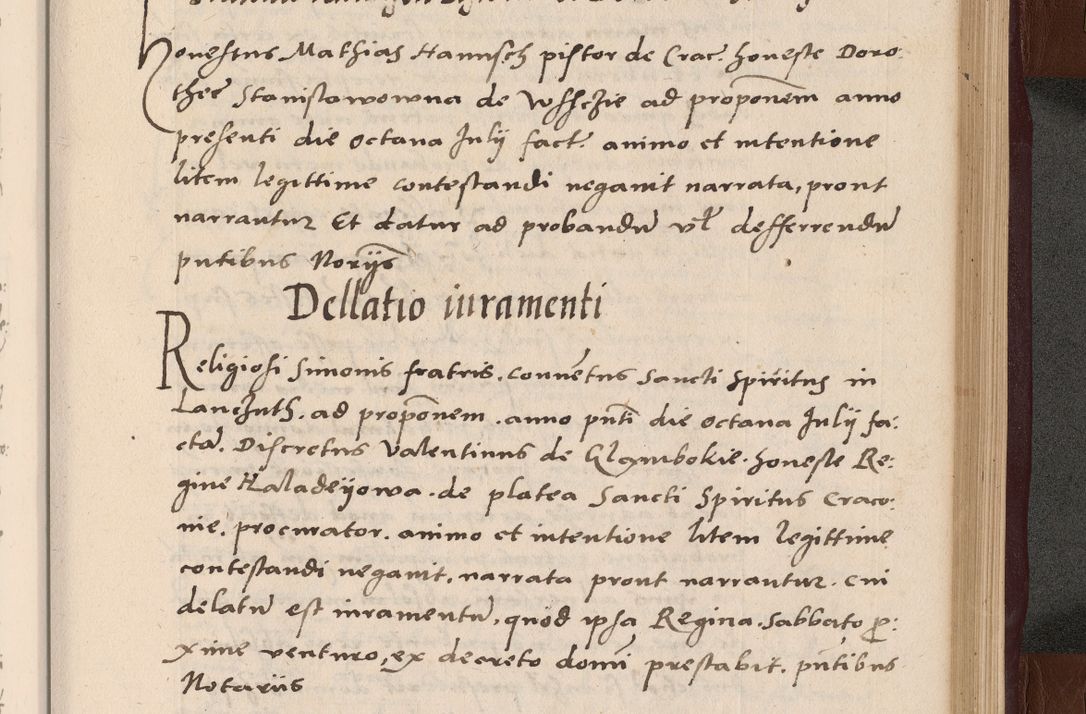 Honestus Mathias Hannsch pistor de Crac. honeste Doro:
thee Stanislawowna de Wsschie ad proponem anno
presenti die octava Julij fact. animo et intentione
litem legittime contestandi negavit narrata, prout
narrantur Et datur ad probandu vl defferrendu
pntibus Norijs
Dellatio iuramenti
Religiosi Simonis fratris, conventus Sancti Spiritus in
Lanczuth, ad proponem anno pnti die octava Julij fa:
cta, Discretus Valentinus de Glambokie honeste Re:
gine Kaladeyowa de platea Sancti Spiritus Craco:
nie, procurator, animo et intentione litem legittime
contestandi negavit, narrata prout narrantur, cui
delatu est iuramentu, quod ipsa Regina Sabbato p:
xime venturo, ex decreto domi prestabit, pntibus
Notariis